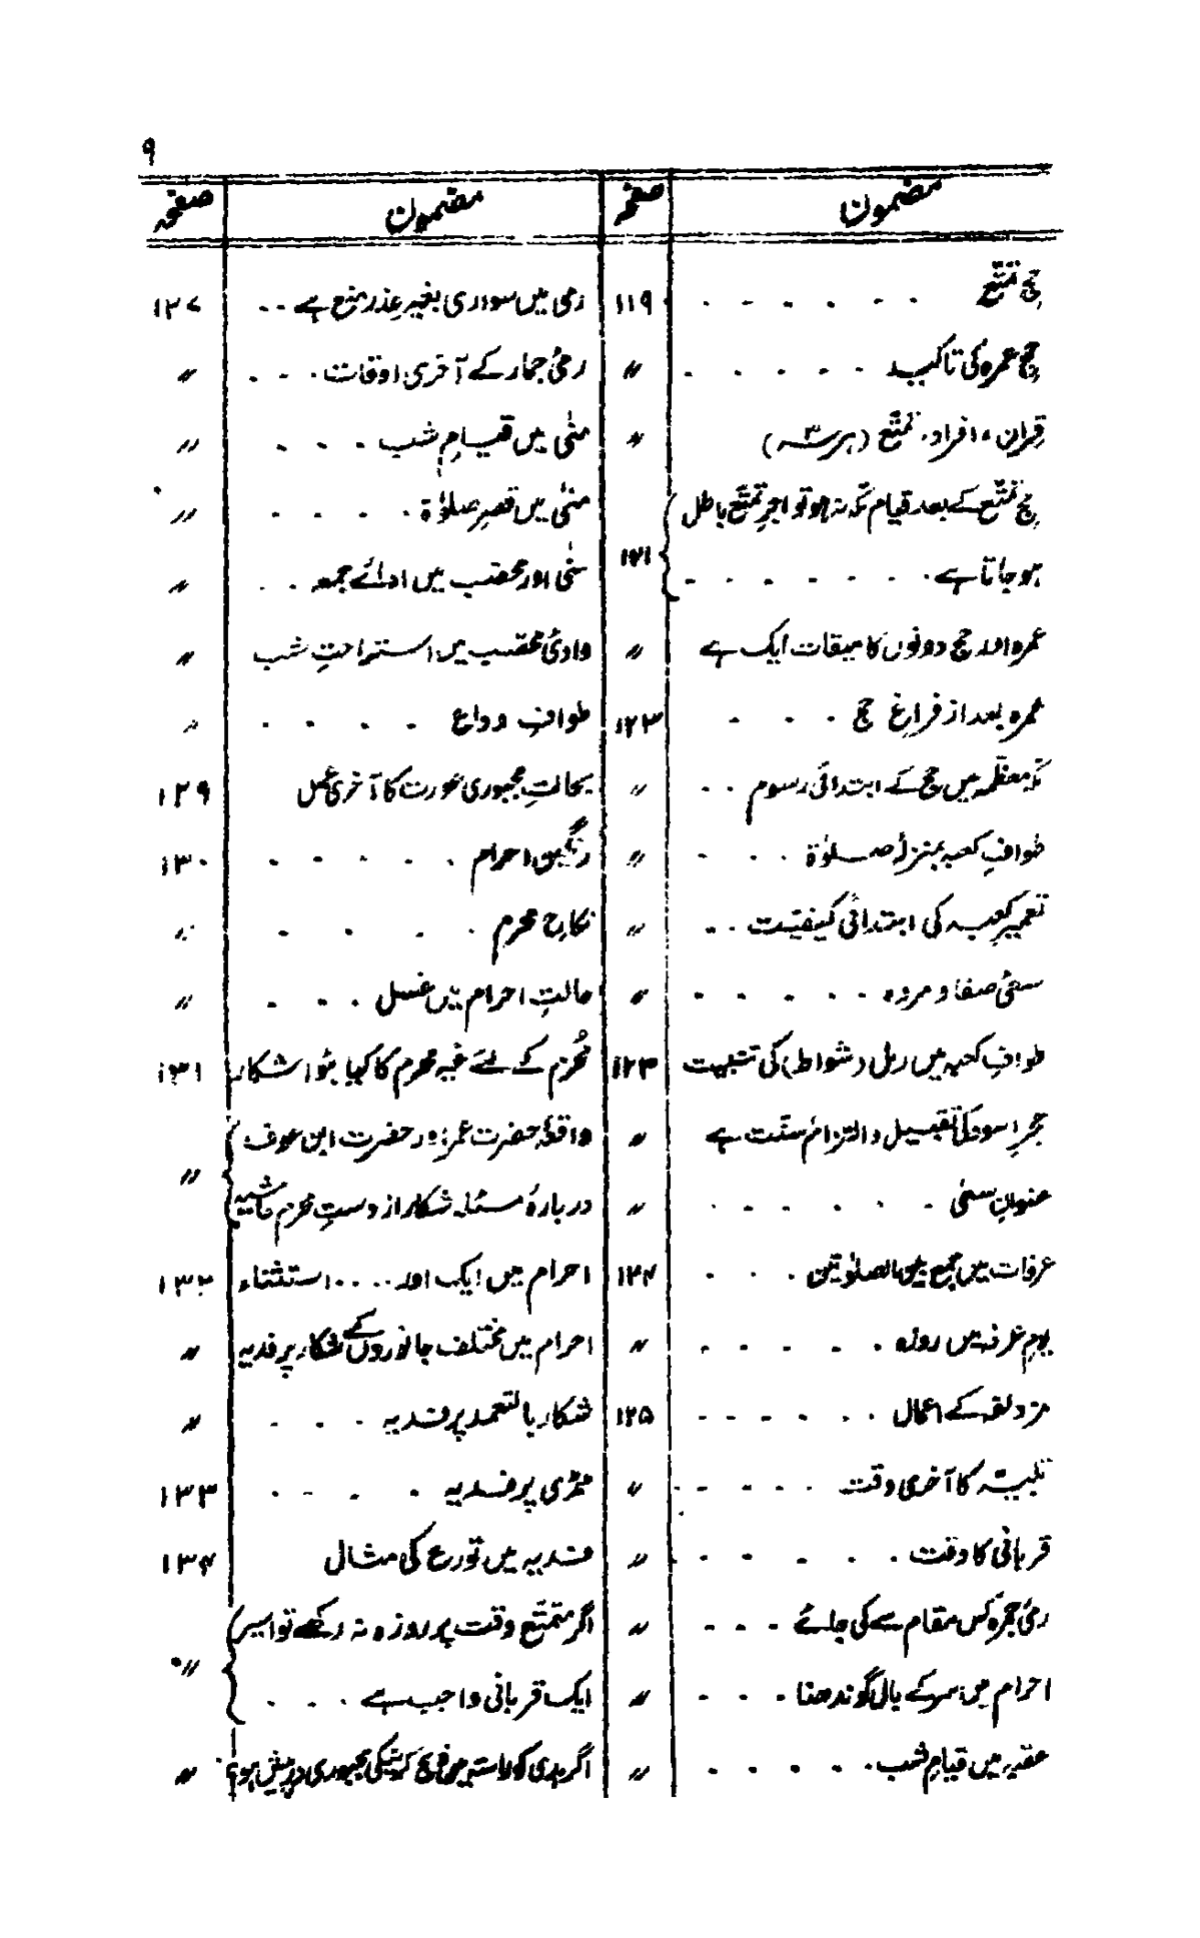 ۹
مضمون صفحہ مضمون صفحہ
حج تمتع ۔ ۔ ۔ ۔ ۔ ۔ ۱۱۹
حج عمرہ کی تاکید ۔ ۔ ۔ ۔ ۔ 〃
قِران، افراد، تمتّع (ہرسہ) 〃
حج تمتّع کے بعد قیام مکہ نہ ہو تو اجرِ تمتّع باطل
ہو جاتا ہے ۔ ۔ ۔ ۔ ۔ ۔ ۔ ۱۲۱
عمرہ اور حج دونوں کا میقات ایک ہے 〃
عمرہ بعد از فراغِ حج ۔ ۔ ۔ ۱۲۳
مکہ معظّمہ میں حج کے ابتدائی رسوم ۔ ۔ 〃
طوافِ کعبہ بمنزلۂ صلوٰۃ ۔ ۔ ۔ 〃
تعمیرِ کعبہ کی ابتدائی کیفیّت ۔ ۔ 〃
سعیٔ صفا و مروہ ۔ ۔ ۔ ۔ ۔ 〃
طوافِ کعبہ میں رمل (شواط) کی 〃 ۱۲۳
حجرِ اسود کی تقبیل و التزام سنّت ہے 〃
عنوانِ سعی ۔ ۔ ۔ ۔ ۔ ۔ 〃
عرفات میں جمع بین الصلوٰتین ۔ ۔ ۔ ۱۲۴
یومِ عرفہ میں روزہ ۔ ۔ ۔ ۔ ۔ 〃
مزدلفہ کے اعمال ۔ ۔ ۔ ۔ ۔ ۔ ۱۲۵
تلبیہ کا آخری وقت ۔ ۔ ۔ ۔ ۔ 〃
قربانی کا وقت ۔ ۔ ۔ ۔ ۔ ۔ 〃
رمیٔ جمرہ کس مقام سے کی جائے ۔ ۔ ۔ 〃
احرام میں سر کے بال گوندھنا ۔ ۔ ۔ 〃
عقبہ میں قیامِ شب ۔ ۔ ۔ ۔ ۔ 〃
رمی میں سواری بغیر عذر منع ہے ۔ ۔ ۱۲۷
رمیٔ جمار کے آخری اوقات ۔ ۔ ۔ 〃
منٰی میں قیامِ شب ۔ ۔ ۔ 〃
منٰی میں قصرِ صلوٰۃ ۔ ۔ ۔ ۔ 〃
منٰی اور محصّب میں ادائے جمعہ ۔ ۔ 〃
وادیٔ محصّب میں استراحتِ شب 〃
طوافِ وداع ۔ ۔ ۔ ۔ 〃
بحالتِ مجبوری عورت کا آخری عمل ۱۲۹
رنگین احرام ۔ ۔ ۔ ۔ ۔ ۱۳۰
نکاحِ محرم ۔ ۔ ۔ ۔ 〃
حالتِ احرام میں غسل ۔ ۔ ۔ 〃
مُحرم کے لئے غیر محرم کا کیا ہوا شکار ۱۳۱
واقعۂ حضرت عمرؓ اور حضرت ابن عوف
دربارۂ مسئلہ شکار از دستِ محرم حاشیہ 〃
احرام میں ایک اور ۔ ۔ ۔ ۔ استثناء ۱۳۲
احرام میں مختلف جانوروں کے شکار پر فدیہ 〃
شکار بالتعمد پر فدیہ ۔ ۔ ۔ 〃
ٹڈی پر فدیہ ۔ ۔ ۔ ۔ ۱۳۳
فدیہ میں تورع کی مثال ۱۳۴
اگر متمتّع وقت پر روزہ نہ رکھے تو اسپر
ایک قربانی واجب ہے ۔ ۔ ۔ 〃
اگر ہدی کو راستہ میں ذبح کرنیکی مجبوری درپیش ہو؟ 〃